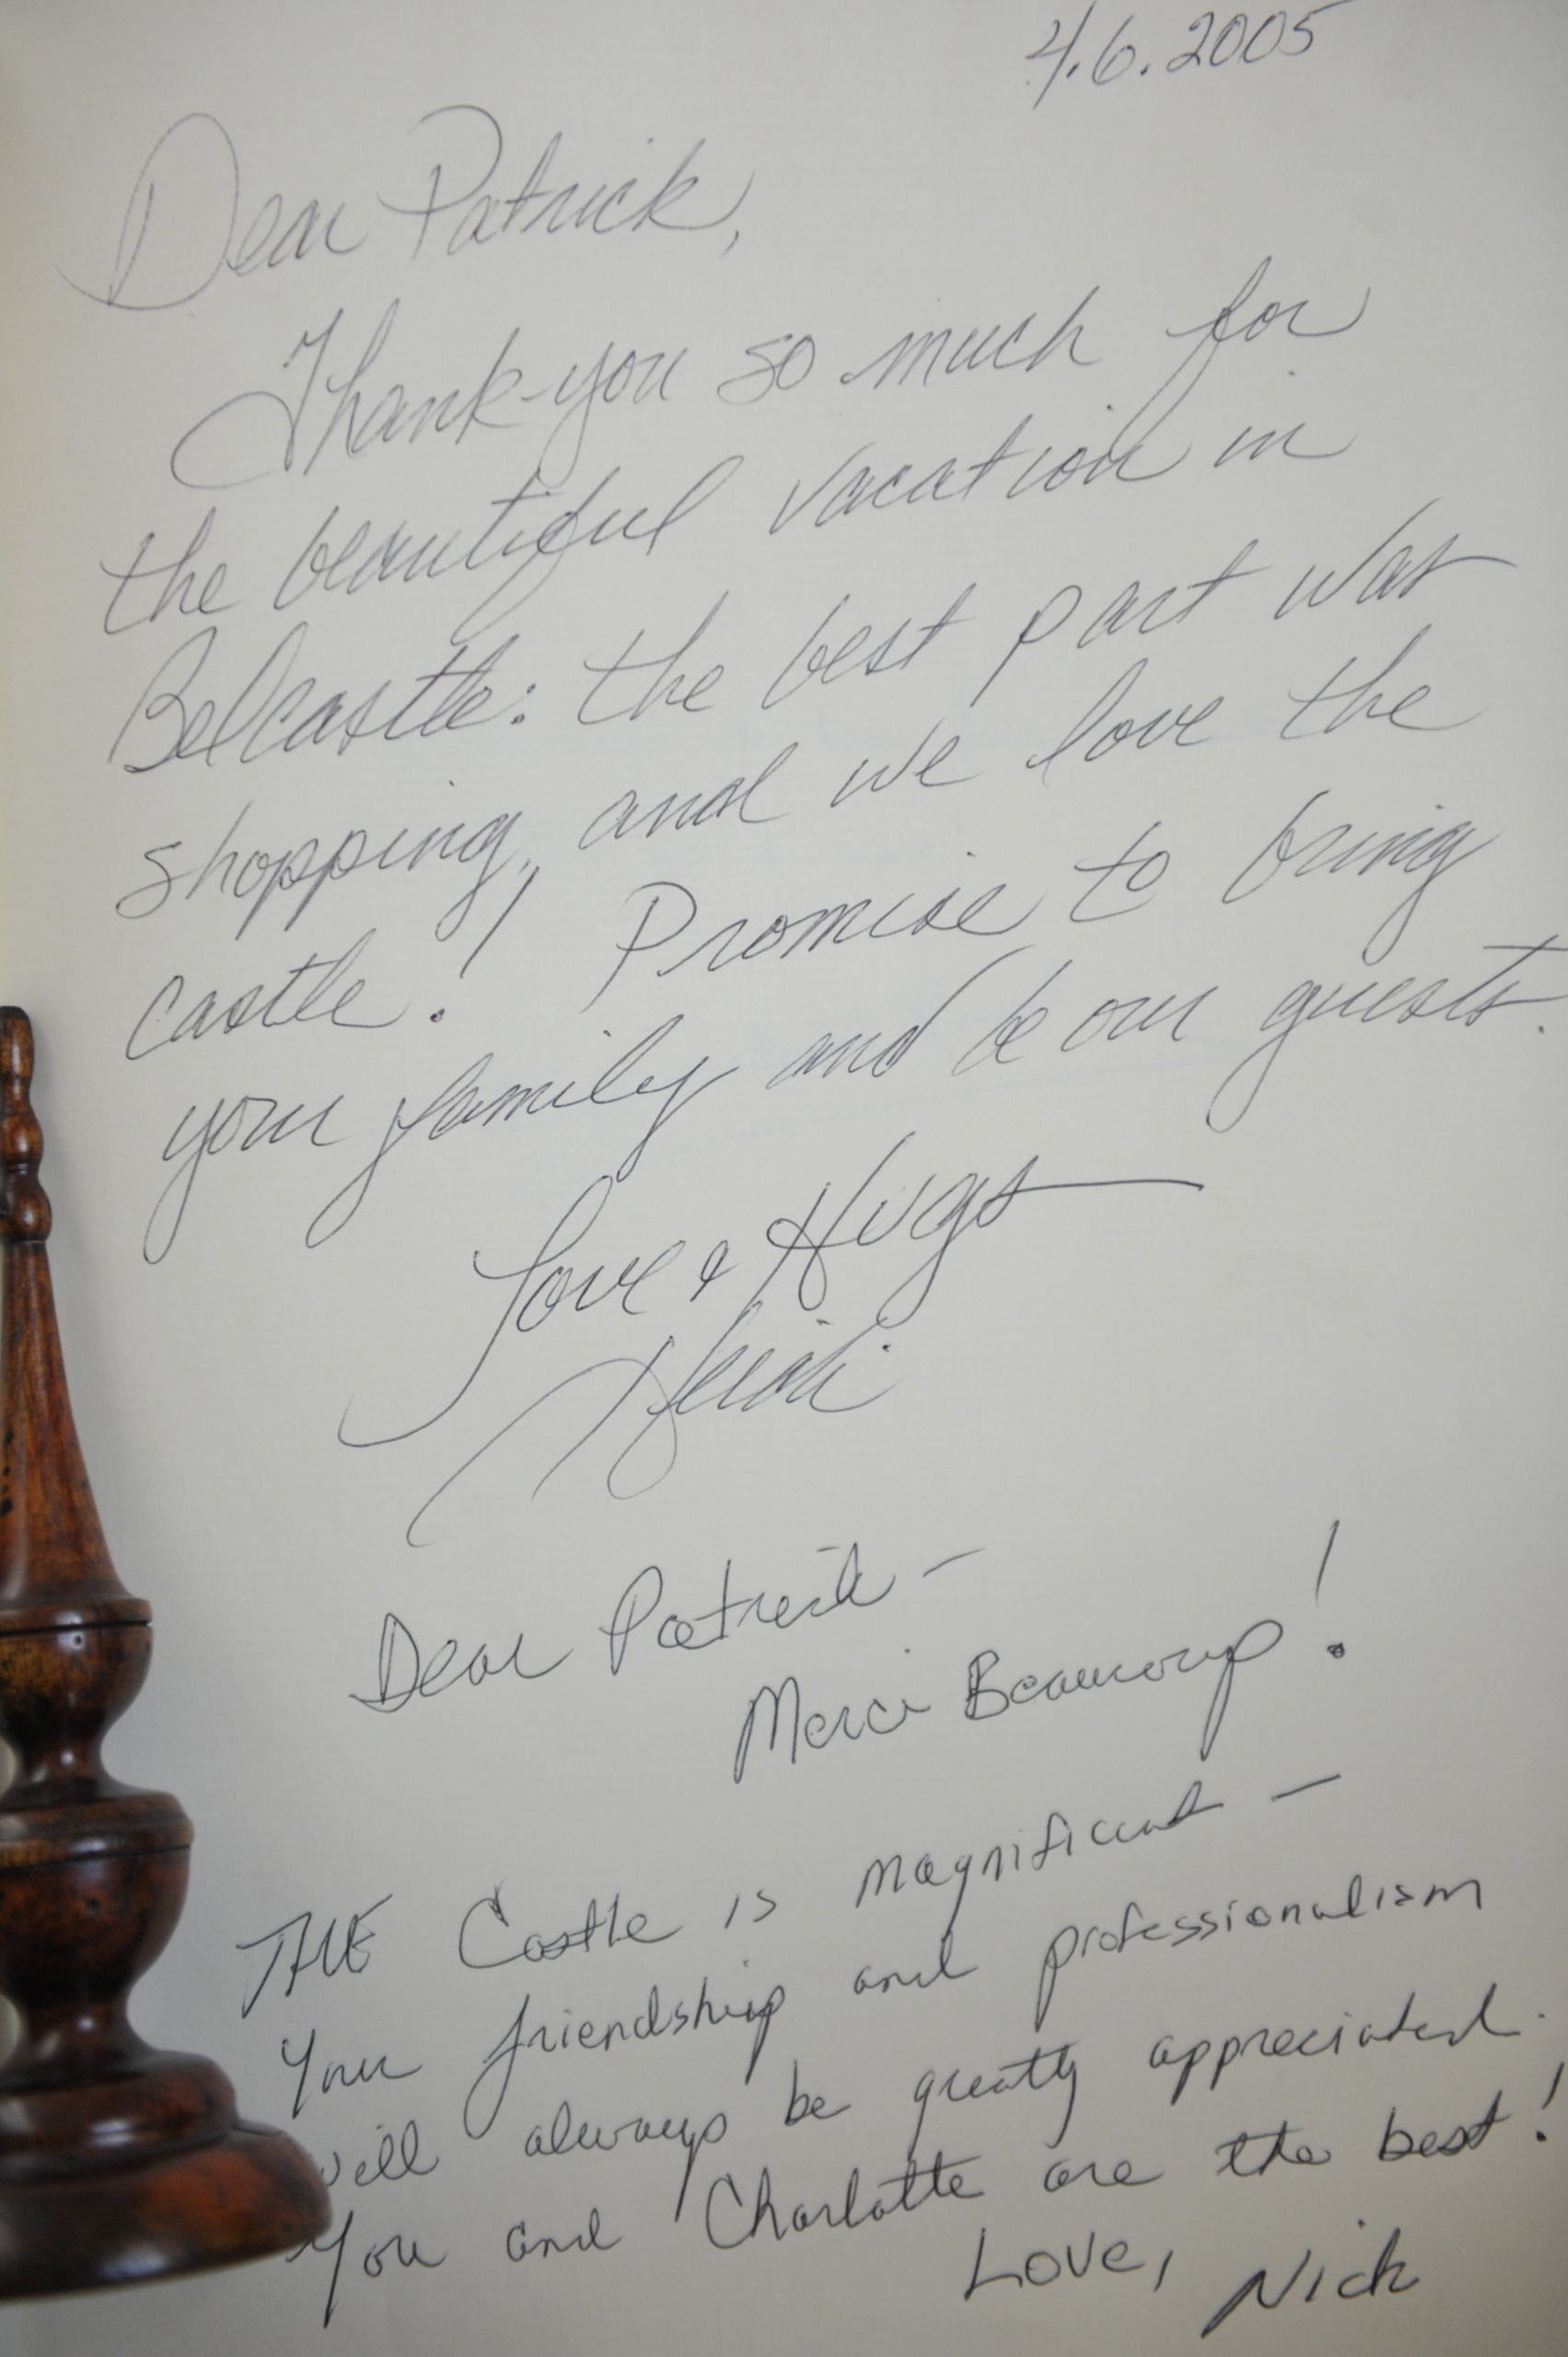 4.6.2005
Dear Patrick,
Thank-you so much for
the beautiful vacation in
Belcastle: the best part was
shopping, and we love the
castle! Promise to bring
your family and be our guests.
Love & Hugs
Heidi
Dear Patrick -
Merci Beaucoup!
THE Castle is magnificent -
Your friendship and professionalism
will always be greatly appreciated.
You and Charlotte are the best!
Love, Nick